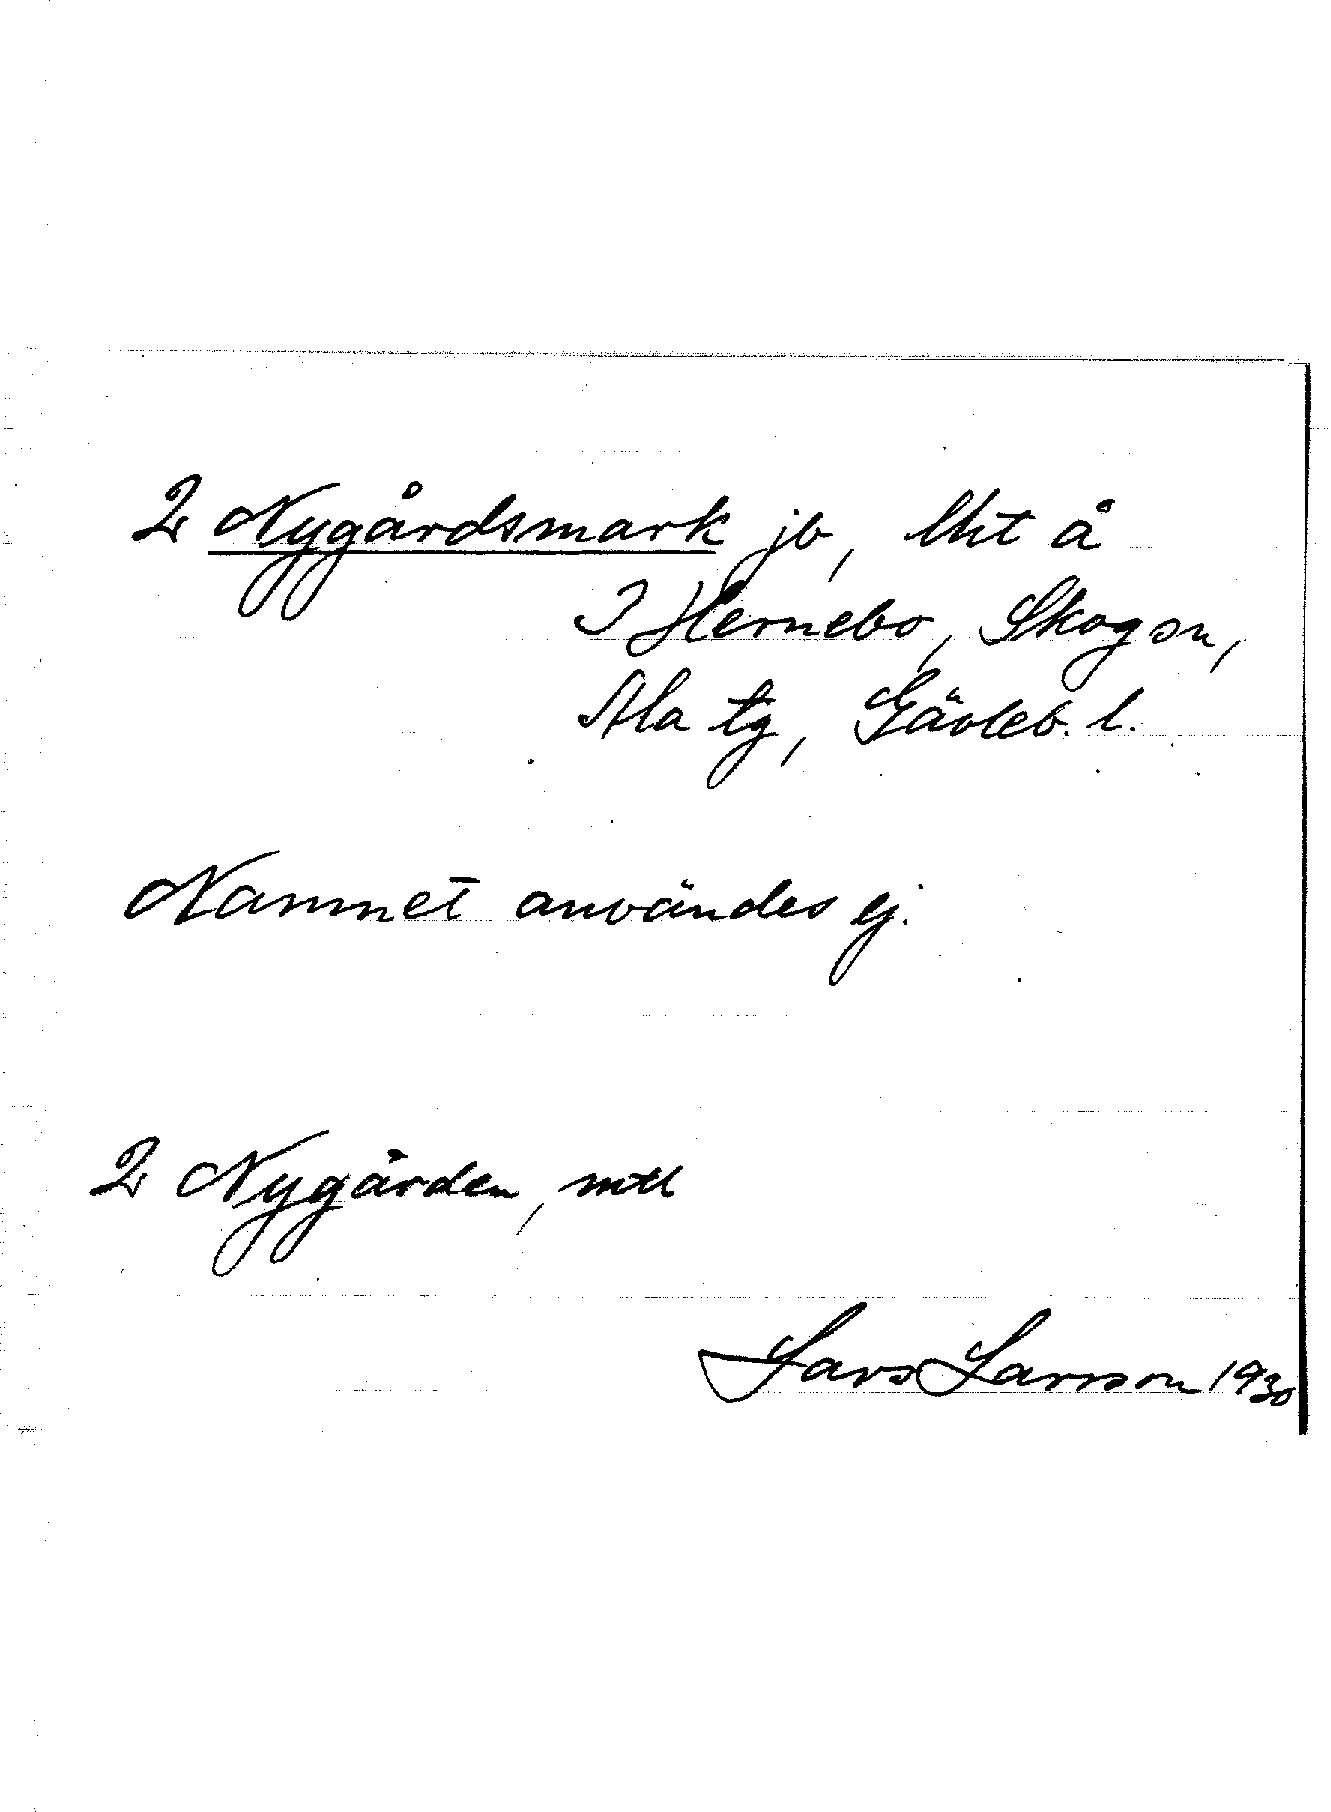 2 Nygårdsmark jb, lht å
I Hernebo, Skog sn,
Ala tg, Gävleb. l.
Namnet användes ej.
2 Nygården, mtl
Lars Larsson 1930